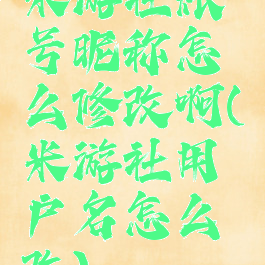 米游社账
号昵称怎
么修改啊(
米游社用
户名怎么
改)